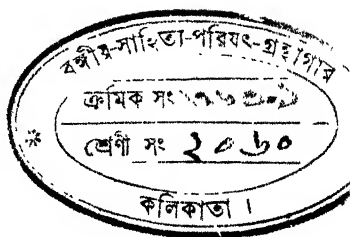 বঙ্গীয়-সাহিত্য-পরিষৎ-গ্রন্থাগার
ক্রমিক সং
শ্রেণী সং ২০৬০
* কলিকাতা ।